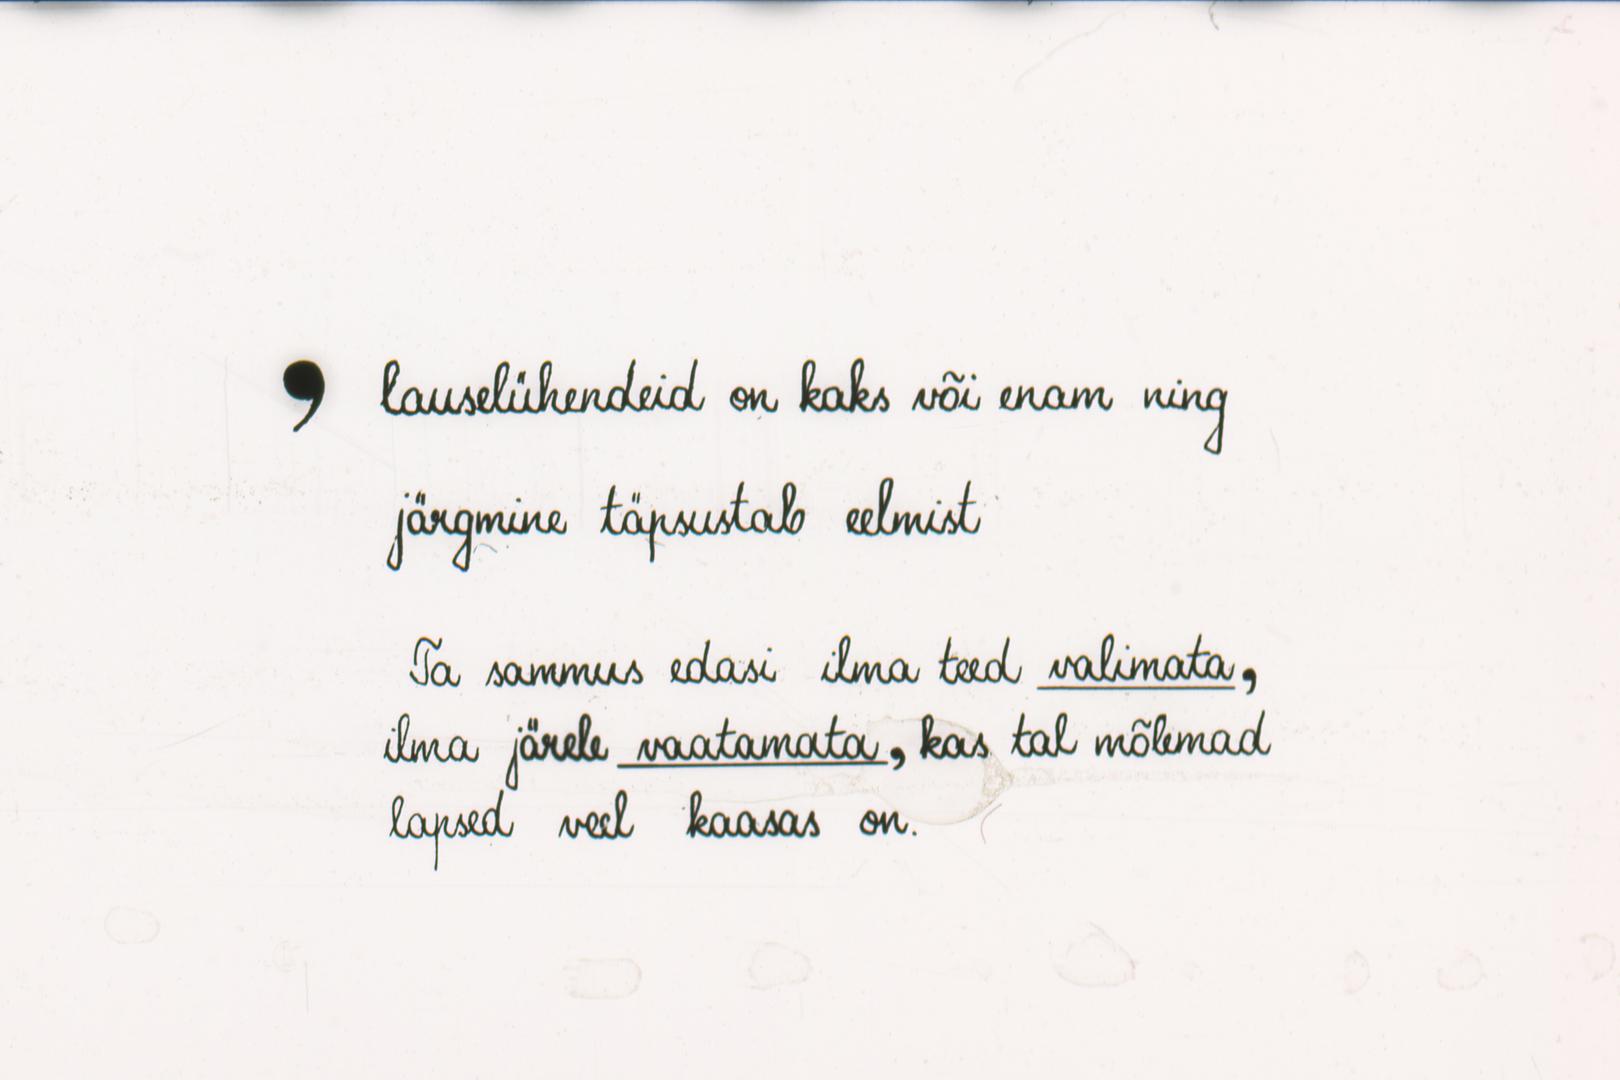 , lauselühendeid on kaks või enam ning
järgmine täpsustab eelmist
Ta sammus edasi ilma teed valimata,
ilma järele vaatamata, kas tal mõlemad
lapsed veel kaasas on.